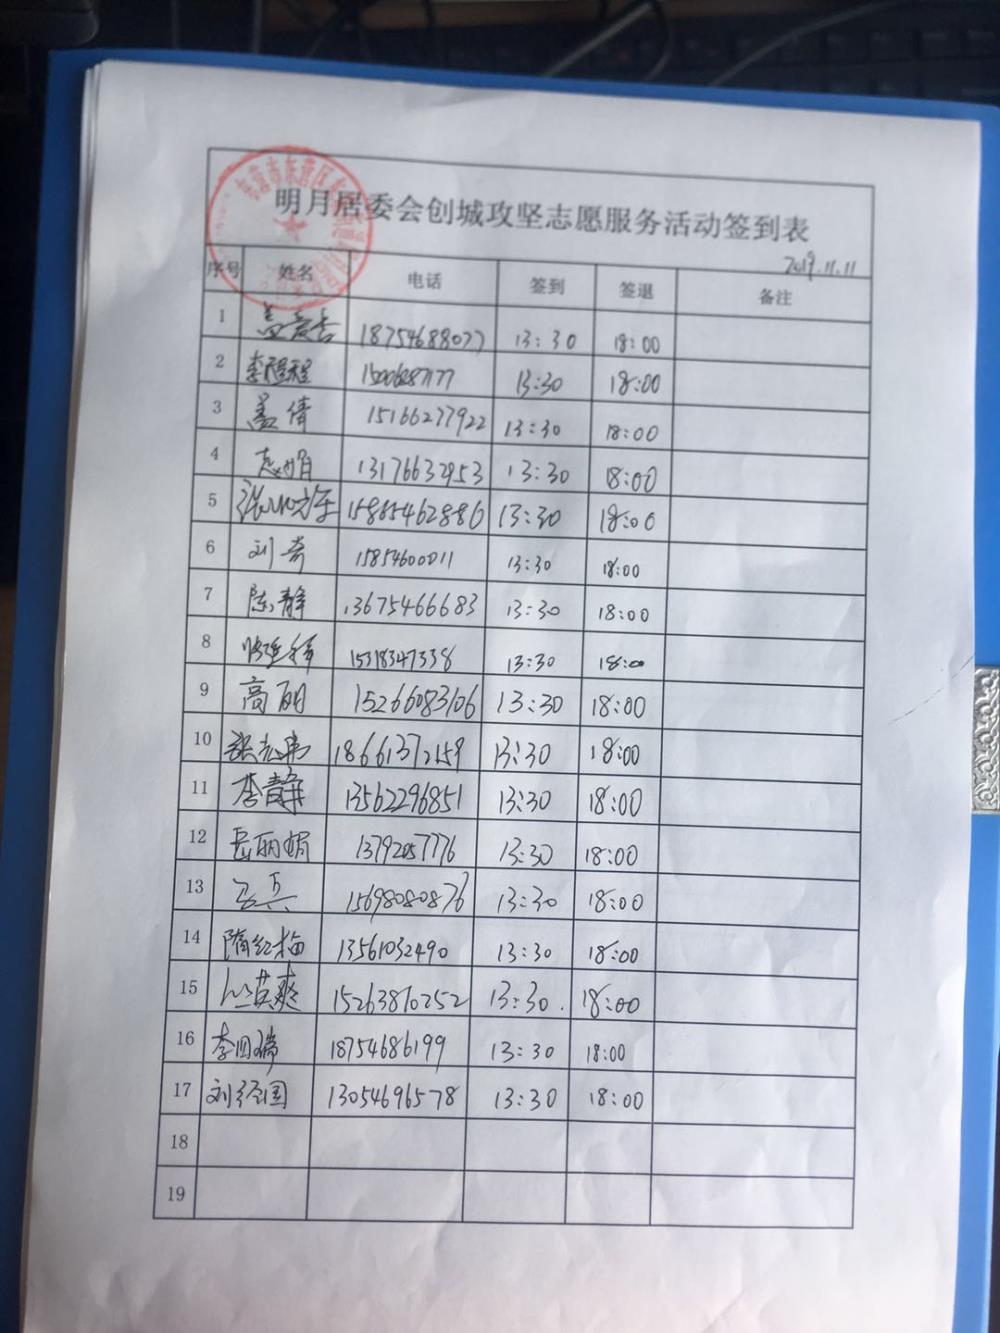 明月居委会创城攻坚志愿服务活动签到表
2019.11.11
序号 姓名 电话 签到 签退 备注
1 18754688077 13:30 18:00
2 13:30 18:00
3 盖倩 15166277922 13:30 18:00
4 13176632953 13:30 18:00
5 15865462886 13:30 18:00
6 刘奇 15854600011 13:30 18:00
7 陈静 13675466683 13:30 18:00
8 15318347338 13:30 18:00
9 高丽 15266083106 13:30 18:00
10 18661372159 13:30 18:00
11 李静 13562296851 13:30 18:00
12 岳丽娟 13792057776 13:30 18:00
13 15698080876 13:30 18:00
14 隋红梅 13561032490 13:30 18:00
15 15263810252 13:30. 18:00
16 18754686199 13:30 18:00
17 刘经国 13054696578 13:30 18:00
18
19